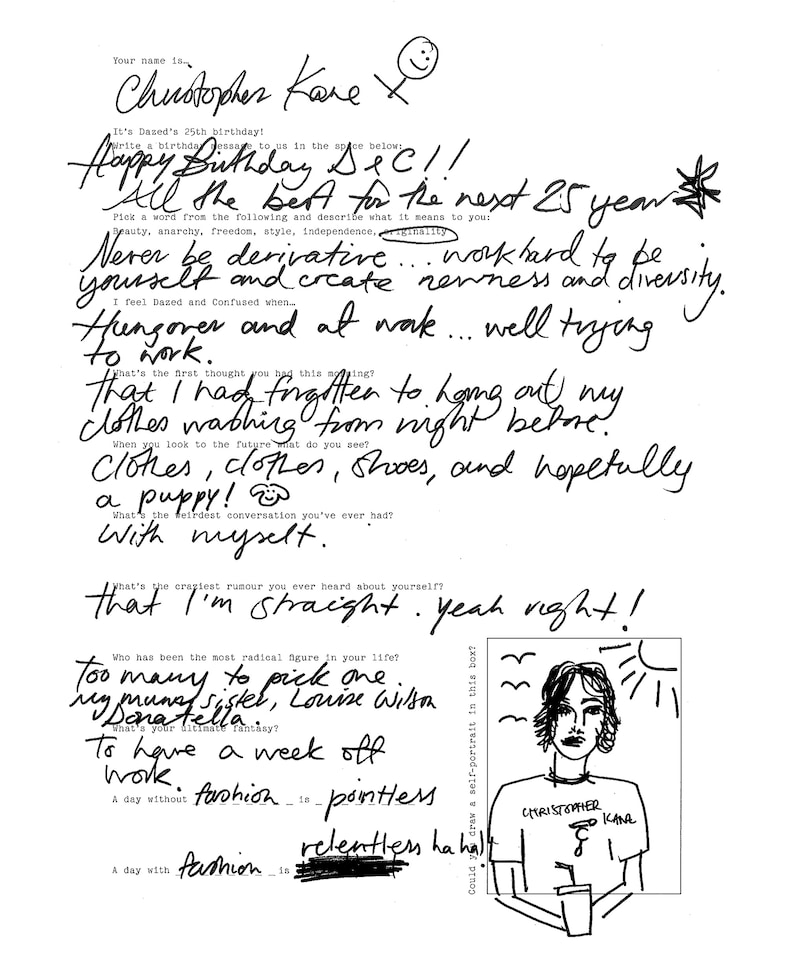 Your name is…
Christopher Kane
It's Dazed's 25th birthday!
Write a birthday message to us in the space below:
Happy Birthday D & C!!
All the best for the next 25 years
Pick a word from the following and describe what it means to you:
Beauty, anarchy, freedom, style, independence, originality
Never be derivative... work hard to be
yourself and create newness and diversity.
I feel Dazed and Confused when…
Hungover and at work... well trying
to work.
What's the first thought you had this morning?
that I had forgotten to hang out my
clothes washing from night before.
When you look to the future what do you see?
Clothes, clothes, shoes, and hopefully
a puppy!
What's the weirdest conversation you've ever had?
With myself.
What's the craziest rumour you ever heard about yourself?
that I'm straight. yeah right!
Who has been the most radical figure in your life?
Too many to pick one.
my mum, sister, Louise Wilson
Donatella.
What's your ultimate fantasy?
To have a week off
work.
A day without fashion is pointless
A day with fashion is relentless ha ha!
Could you draw a self-portrait in this box?
CHRISTOPHER
KANE